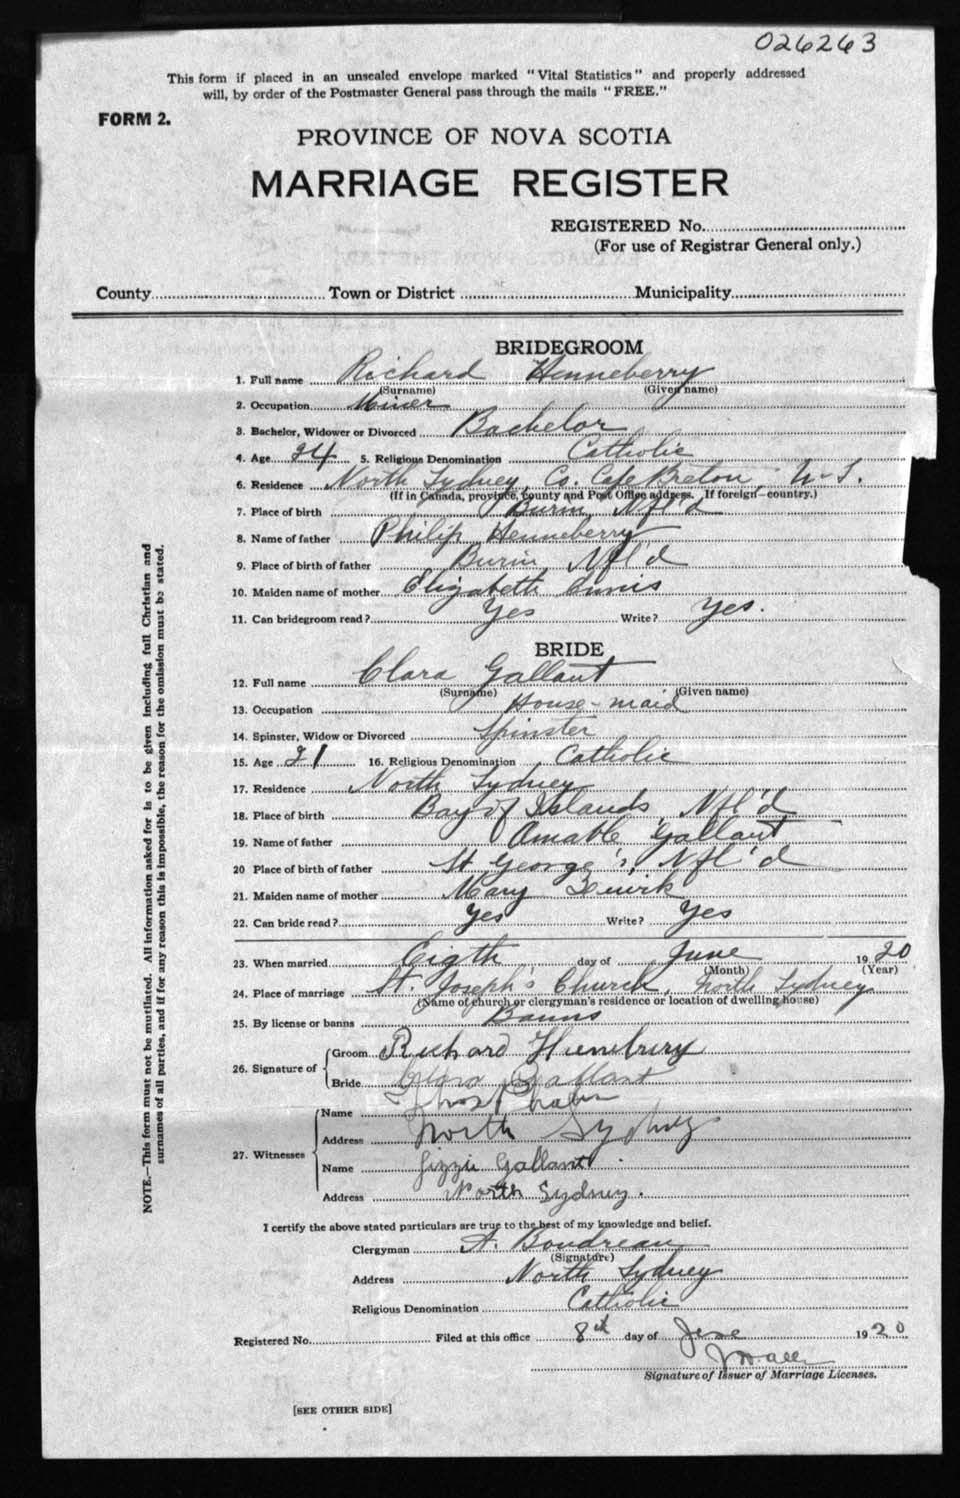 026263
This form if placed in an unsealed envelope marked "Vital Statistics" and properly addressed
will, by order of the Postmaster General pass through the mails "FREE."
FORM 2.
PROVINCE OF NOVA SCOTIA
MARRIAGE REGISTER
REGISTERED No.
(For use of Registrar General only.)
County Town or District Municipality
BRIDEGROOM
1. Full name Richard Henneberry
(Surname) (Given name)
2. Occupation Miner
3. Bachelor, Widower or Divorced Bachelor
4. Age 24 5. Religious Denomination Catholic
6. Residence North Sydney, Co. Cape Breton, N.S.
(If in Canada, province, county and Post Office address. If foreign—country.)
7. Place of birth Burin, Nfl'd
8. Name of father Philip Henneberry
9. Place of birth of father Burin, Nfl'd
10. Maiden name of mother Elizabeth
11. Can bridegroom read? Yes Write? Yes.
BRIDE
12. Full name Clara Gallant
(Surname) (Given name)
13. Occupation House-maid
14. Spinster, Widow or Divorced Spinster
15. Age 21 16. Religious Denomination Catholic
17. Residence North Sydney
18. Place of birth Bay of Islands, Nfl'd
19. Name of father Amable Gallant
20 Place of birth of father St. George's, Nfl'd
21. Maiden name of mother Mary Quirk
22. Can bride read? Yes Write? Yes
23. When married Eigth day of June 1920
(Month) (Year)
24. Place of marriage St. Joseph's Church, North Sydney
(Name of church or clergyman's residence or location of dwelling house)
25. By license or banns Banns
26. Signature of Groom Richard
Bride Clara Gallant
27. Witnesses Name
Address North Sydney
Name Lizzie Gallant
Address North Sydney.
I certify the above stated particulars are true to the best of my knowledge and belief.
Clergyman A. Boudreau
(Signature)
Address North Sydney
Religious Denomination Catholic
Registered No. Filed at this office 8th day of June 1920
Signature of Issuer of Marriage Licenses.
[SEE OTHER SIDE]
NOTE.—This form must not be mutilated. All information asked for is to be given including full Christian and
surnames of all parties, and if for any reason this is impossible, the reason for the omission must be stated.